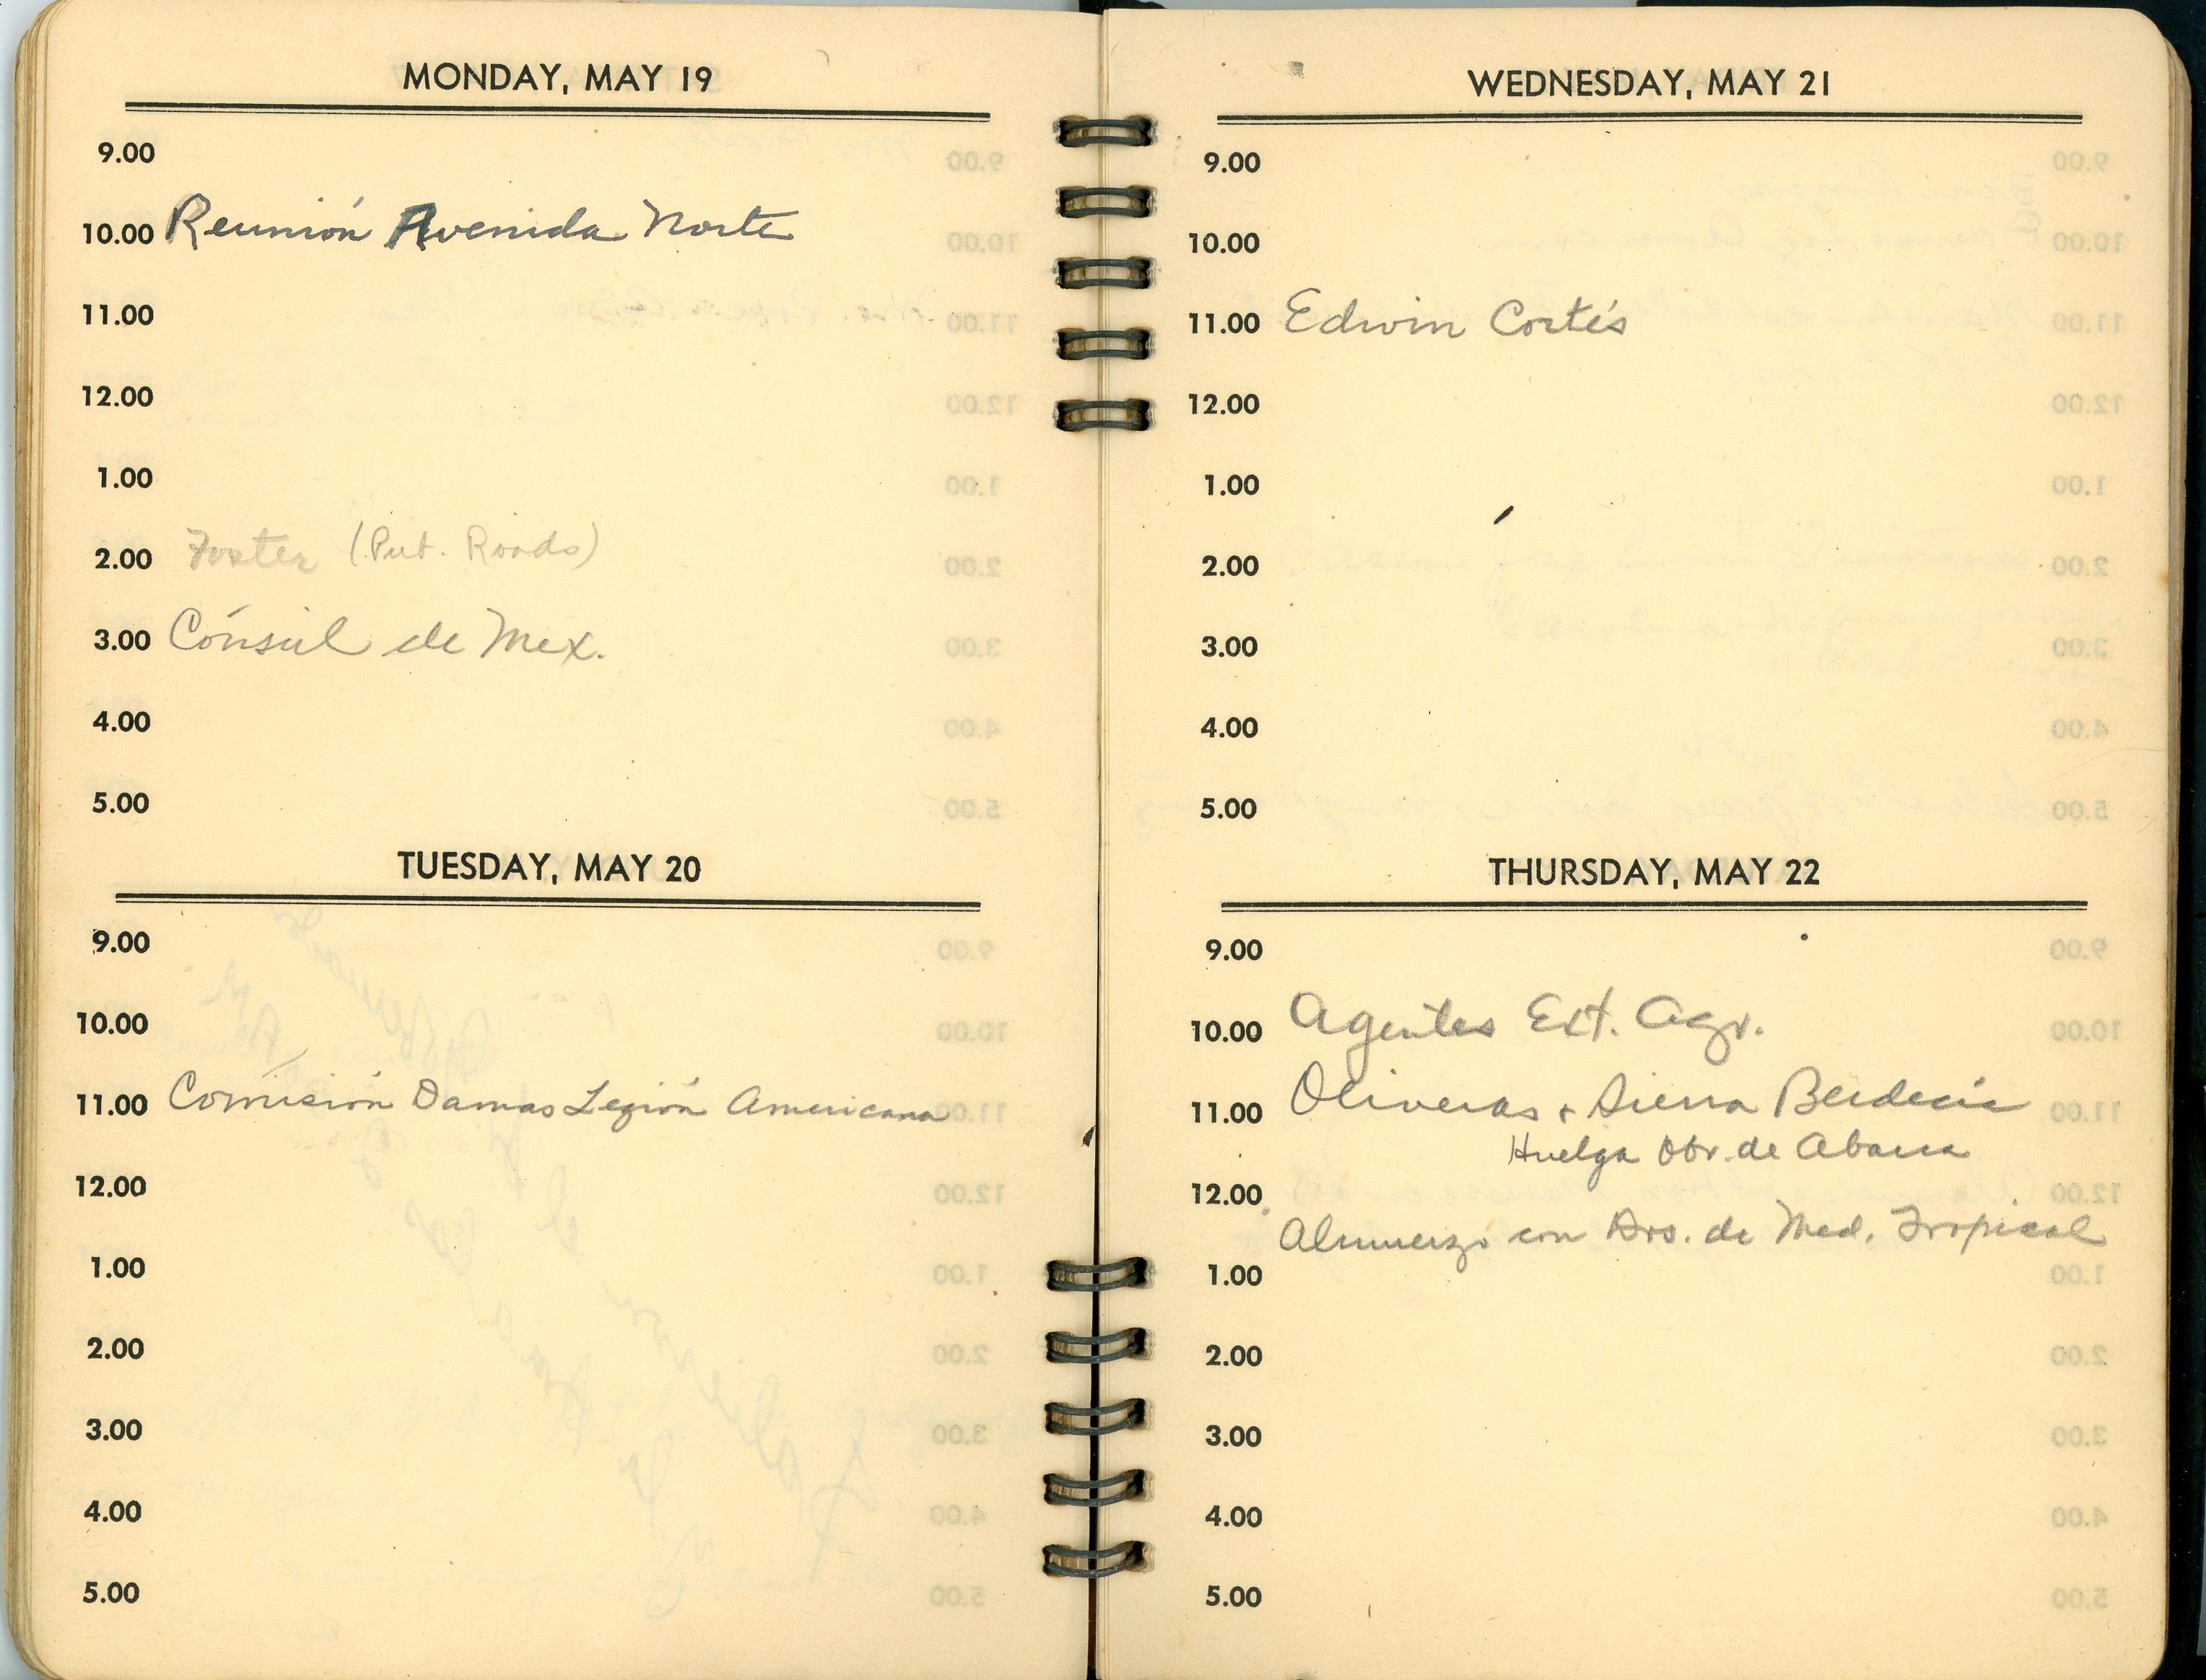 MONDAY, MAY 19
9.00
10.00 Reunión Avenida Norte
11.00
12.00
1.00
2.00 Foster (Pub. Roads)
3.00 Cónsul de Mex.
4.00
5.00
TUESDAY, MAY 20
9.00
10.00
11.00 Comisión Damas Legión Americana
12.00
1.00
2.00
3.00
4.00
5.00
WEDNESDAY, MAY 21
9.00
10.00
11.00 Edwin Cortés
12.00
1.00
2.00
3.00
4.00
5.00
THURSDAY, MAY 22
9.00
10.00 Agentes Ext. Agr.
11.00 Oliveras + Sierra Berdecía
Huelga Obr. de Abarca
12.00
Almuerzo con Drs. de Med. Tropical
1.00
2.00
3.00
4.00
5.00